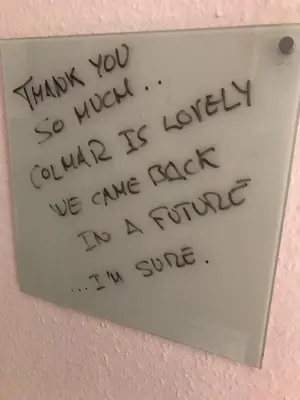 THANK YOU
SO MUCH..
COLMAR IS LOVELY
WE CAME BACK
IN A FUTURE
...I'M SURE.